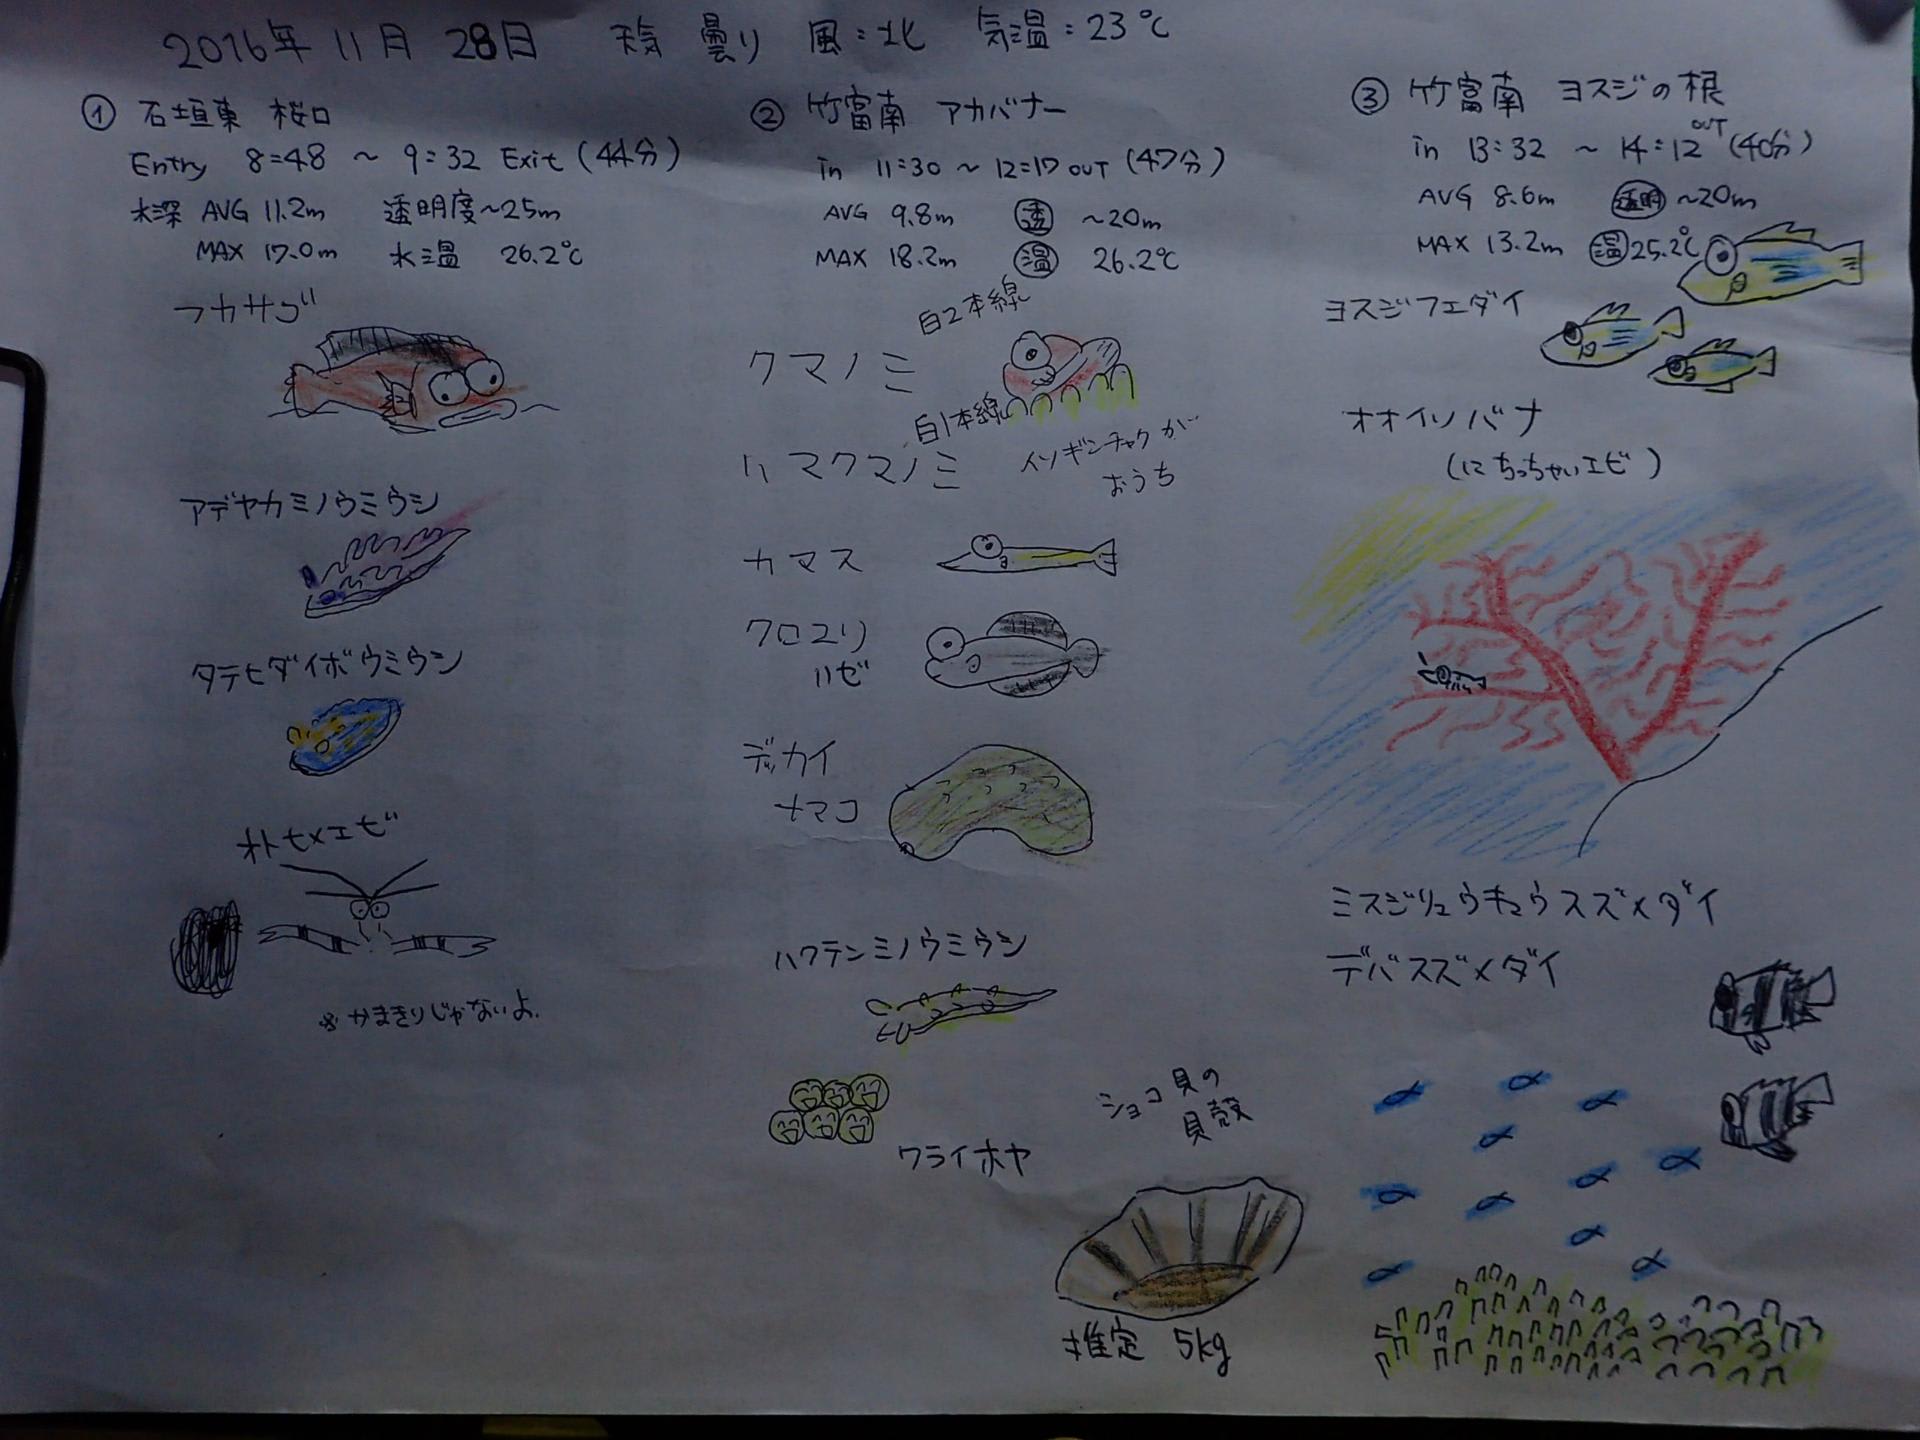 2016年 11月 28日 天気 曇り 風:北 気温:23℃
① 石垣東 桜口
Entry 8:48 ~ 9:32 Exit (44分)
水深 AVG 11.2m 透明度~25m
MAX 17.0m 水温 26.2℃
フカサゴ
アデヤカミノウミウシ
タテヒダイボウミウシ
オトヒメエビ
※かまきりじゃないよ.
② 竹富南 アカバナー
in 11:30 ~ 12:17 OUT (47分)
AVG 9.8m 透 ~20m
MAX 18.2m 温 26.2℃
白2本線
クマノミ
白1本線
ハマクマノミ
イソギンチャクが
おうち
カマス
クロユリ
ハゼ
デッカイ
ナマコ
ハクテンミノウミウシ
ワライホヤ
シャコ貝の
貝殻
推定 5kg
③ 竹富南 ヨスジの根
in 13:32 ~ 14:12 OUT (40分)
AVG 8.6m 透明 ~20m
MAX 13.2m 温 25.2℃
ヨスジフエダイ
オオイソバナ
(にちっちゃいエビ)
ミスジリュウキュウスズメダイ
デバスズメダイ